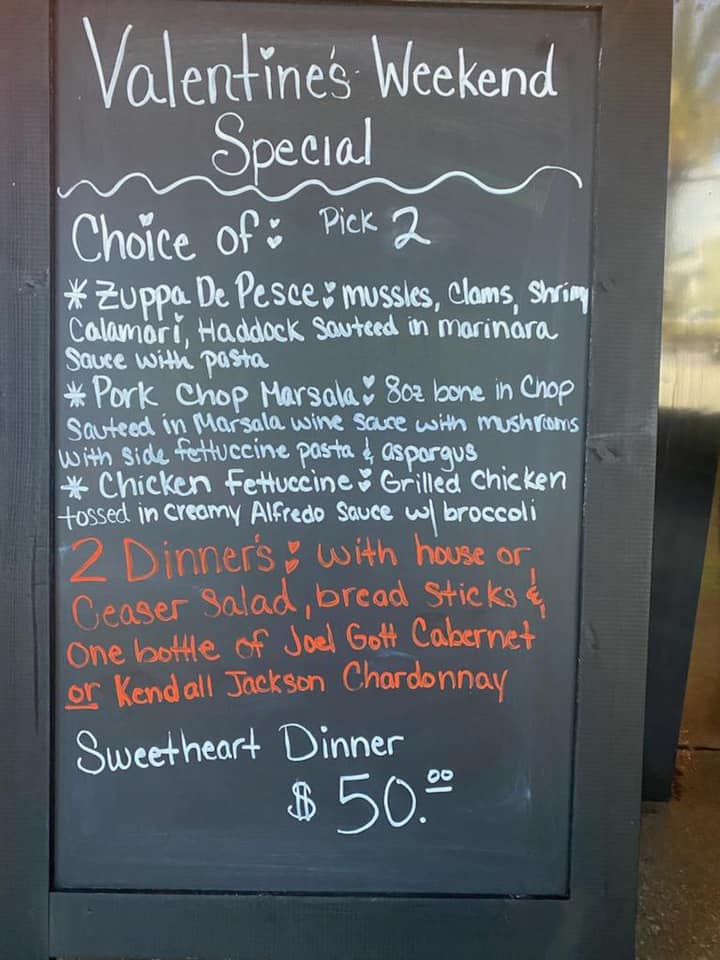 Valentine's Weekend
Special
Choice of: Pick 2
* Zuppa De Pesce: mussles, Clams, Shrimp
Calamari, Haddock Sauteed in marinara
Sauce with pasta
* Pork Chop Marsala: 8oz bone in Chop
Sauteed in Marsala wine Sauce with mushrooms
with side fettuccine pasta & aspargus
* Chicken Fettuccine: Grilled Chicken
tossed in creamy Alfredo Sauce w/ broccoli
2 Dinner's: with house or
Ceaser Salad, bread Sticks &
One bottle of Joel Gott Cabernet
or Kendall Jackson Chardonnay
Sweetheart Dinner
$50.00